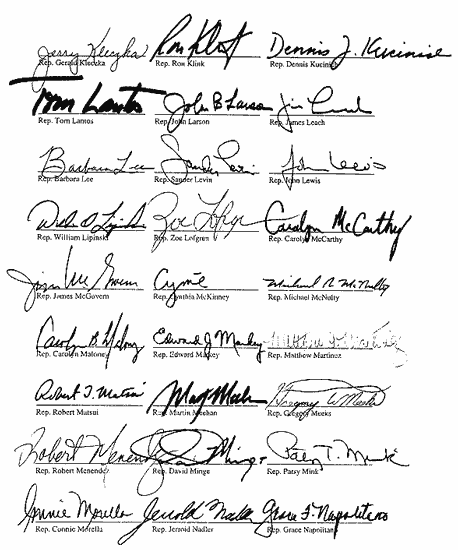 Jerry Kleczka Ron Klink Dennis J. Kucinich
Rep. Gerald Kleczka Rep. Ron Klink Rep. Dennis Kucinich
Tom Lantos John B Larson Jim Leach
Rep. Tom Lantos Rep. John Larson Rep. James Leach
Barbara Lee Sander Levin John Lewis
Rep. Barbara Lee Rep. Sander Levin Rep. John Lewis
William O. Lipinski Zoe Lofgren Carolyn McCarthy
Rep. William Lipinski Rep. Zoe Lofgren Rep. Carolyn McCarthy
Jim McGovern Cynthia Michael R. McNulty
Rep. James McGovern Rep. Cynthia McKinney Rep. Michael McNulty
Carolyn B Maloney Edward J Markey Matthew G. Martinez
Rep. Carolyn Maloney Rep. Edward Markey Rep. Matthew Martinez
Robert T. Matsui Marty Meehan Gregory W Meeks
Rep. Robert Matsui Rep. Martin Meehan Rep. Gregory Meeks
Robert Menendez David Minge Patsy T. Mink
Rep. Robert Menendez Rep. David Minge Rep. Patsy Mink
Connie Morella Jerrold Nadler Grace F Napolitano
Rep. Connie Morella Rep. Jerrold Nadler Rep. Grace Napolitan